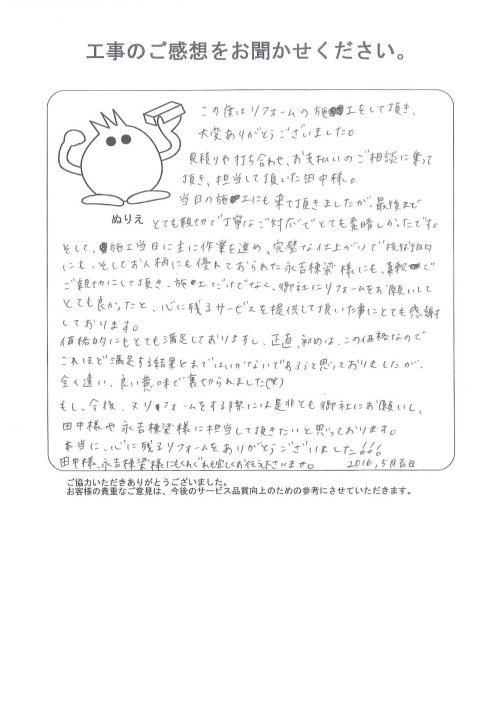 工事のご感想をお聞かせください。
この度はリフォームの施工をして頂き、
大変ありがとうございました。
見積りや打ち合わせ、お支払いのご相談に乗って
頂き、担当して頂いた田中様。
当日の施工にも来て頂きましたが、最後まで
ぬりえ
とても親切で丁寧なご対応でとても素晴しかったです。
そして、施工当日に主に作業を進め、完璧な仕上がりで技術的
にも、そしてお人柄にも優れておられた永吉棟梁様にも、柔軟で
ご親切にして頂き、施工だけでなく、御社にリフォームをお願いして
とても良かったと、心に残るサービスを提供して頂いた事にとても感謝
しております。
価格的にもとても満足しておりますし、正直、初めは、この価格なので
これほど満足する結果とまではいかないであろうと思っておりましたが、
全く違い、良い意味で裏切られました(笑)
もし、今後、又リフォームをする際には是非とも御社にお願いし、
田中様や永吉棟梁様に担当して頂きたいと思っております。
本当に、心に残るリフォームをありがとうございました!!!
田中様、永吉棟梁様にもくれぐれも宜しくお伝え下さいませ。 2016,5月吉日
ご協力いただきありがとうございました。
お客様の貴重なご意見は、今後のサービス品質向上のための参考にさせていただきます。